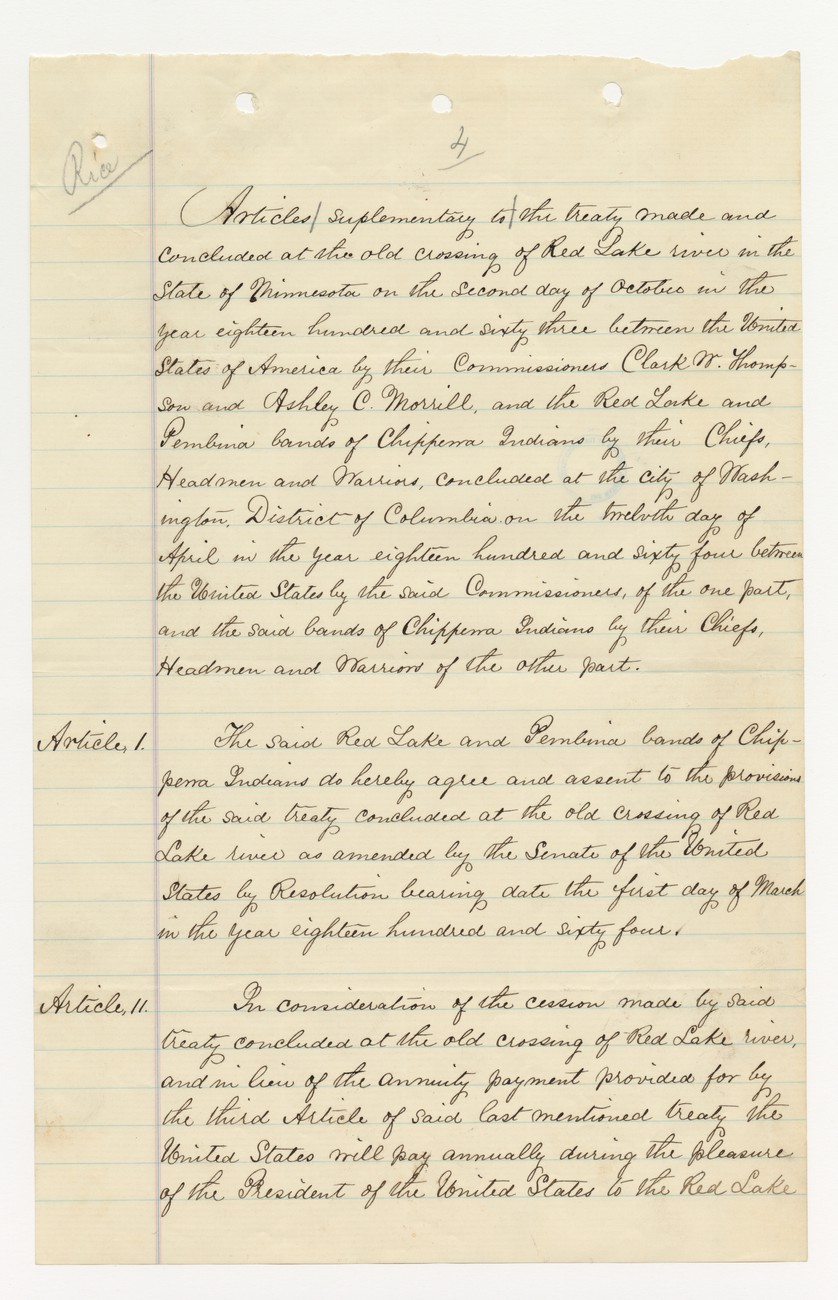 4
Rice
Articles suplementary to the treaty made and
concluded at the old crossing of Red Lake river in the
State of Minnesota on the second day of October in the
year eighteen hundred and sixty three between the United
States of America by their Commissioners Clark W. Thomp-
son and Ashley C. Morrill, and the Red Lake and
Pembina bands of Chippewa Indians by their Chiefs,
Headmen and Warriors, concluded at the city of Wash-
ington, District of Columbia on the twelvth day of
April in the year eighteen hundred and sixty four between
the United States by the said Commissioners, of the one part,
and the said bands of Chippewa Indians by their Chiefs,
Headmen and Warriors of the other part.
Article, 1. The said Red Lake and Pembina bands of Chip-
pewa Indians do hereby agree and assent to the provisions
of the said treaty concluded at the old crossing of Red
Lake river as amended by the Senate of the United
States by Resolution bearing date the first day of March
in the year eighteen hundred and sixty four.
Article, 11. In consideration of the cession made by said
treaty concluded at the old crossing of Red Lake river,
and in lieu of the annuity payment provided for by
the third Article of said last mentioned treaty the
United States will pay annually during the pleasure
of the President of the United States to the Red Lake